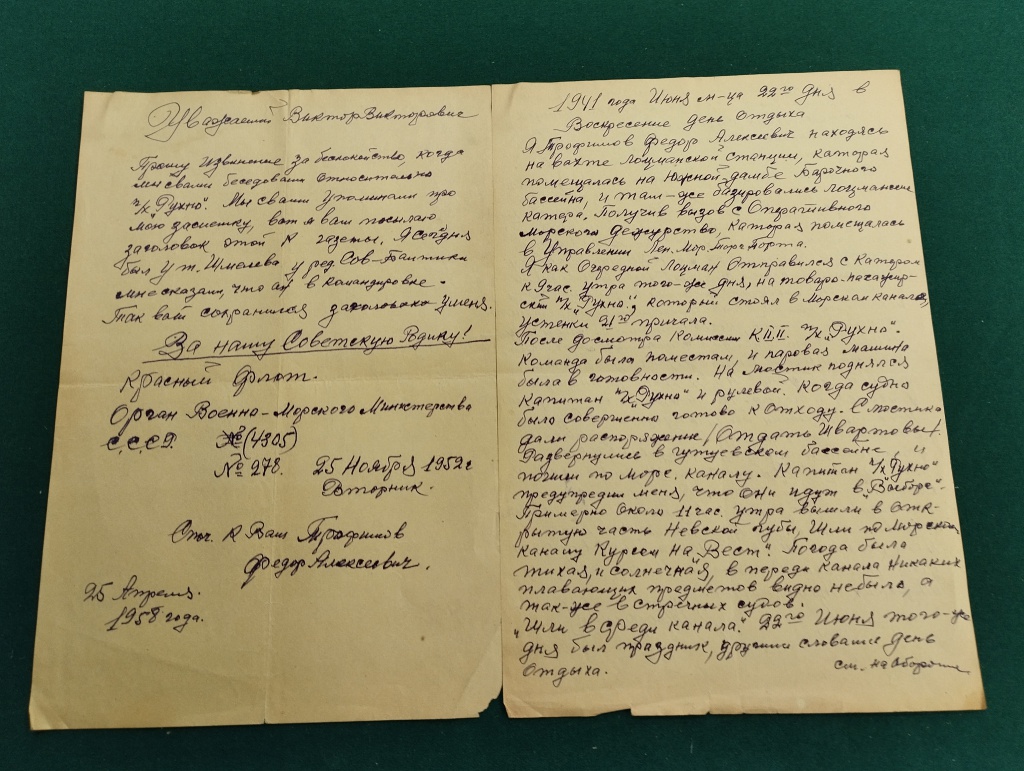 Уважаемый Виктор Викторович
Прошу Извинение за беспокойство, когда
мы с вами беседовали относительно
п/х "Рухно". Мы с вами упоминали про
мою заслепку, вот я вам посылаю
заголовок этой К газеты. Я сегодня
был у т. Шмелева у ред. Сов-Балтики
мне сказали, что он в командировке.
Так вот сохранился заголовок у меня.
За нашу Советскую Родину!
Красный Флот.
Орган Военно-Морского Министерства
С.С.С.Р. № (4305)
№ 278. 25 Ноября 1952 г
Вторник.
С поч. к Вам Трофимов
Федор Алексеевич.
25 Апреля.
1958 года.
1941 года Июня м-ца 22го дня в
Воскресение день отдыха
Я Трофимов Федор Алексеевич находясь
на вахте лоцманской станции, каторая
помещалась на Южной дамбе Барочного
бассейна, и там-же базировались лоцманские
катера. Получив вызов с Оперативного
Морского дежурство, каторая помещалась
в Управлении Лен. Мор. Торг. Порта.
Я как Очередной Лоцман Отправился с катером
к 9 час. утра того-же дня, на товаро-пасажир-
ский п/х "Рухно", который стоял в Морском канале,
у стенки 21го причала.
После досмотра Комиссии К.П.П. п/х "Рухно".
Команда была по местам, и паровая машина
была в готовности. На мостик поднялся
капитан п/х "Рухно" и рулевой. Когда судно
было совершенно готово к отходу. С мостика
дали распоряжение /Отдать Швартовы/.
Развернулись в Гутуевском бассейне, и
пошли по морс. каналу. Капитан п/х "Рухно"
предупредил меня, что они идут в "Выборг".
Примерно около 11 час. утра вышли в отк-
рытую часть Невской губы, шли по Морском
каналу курсом на "Вест". Погода была
тихая, и солнечная, в переди канала никаких
плавающих предметов видно небыло, а
так-же встречных судов.
"Шли в среди канала." 22го Июня того-же
дня был праздник, другими словами день
отдыха.
см. на Обороте